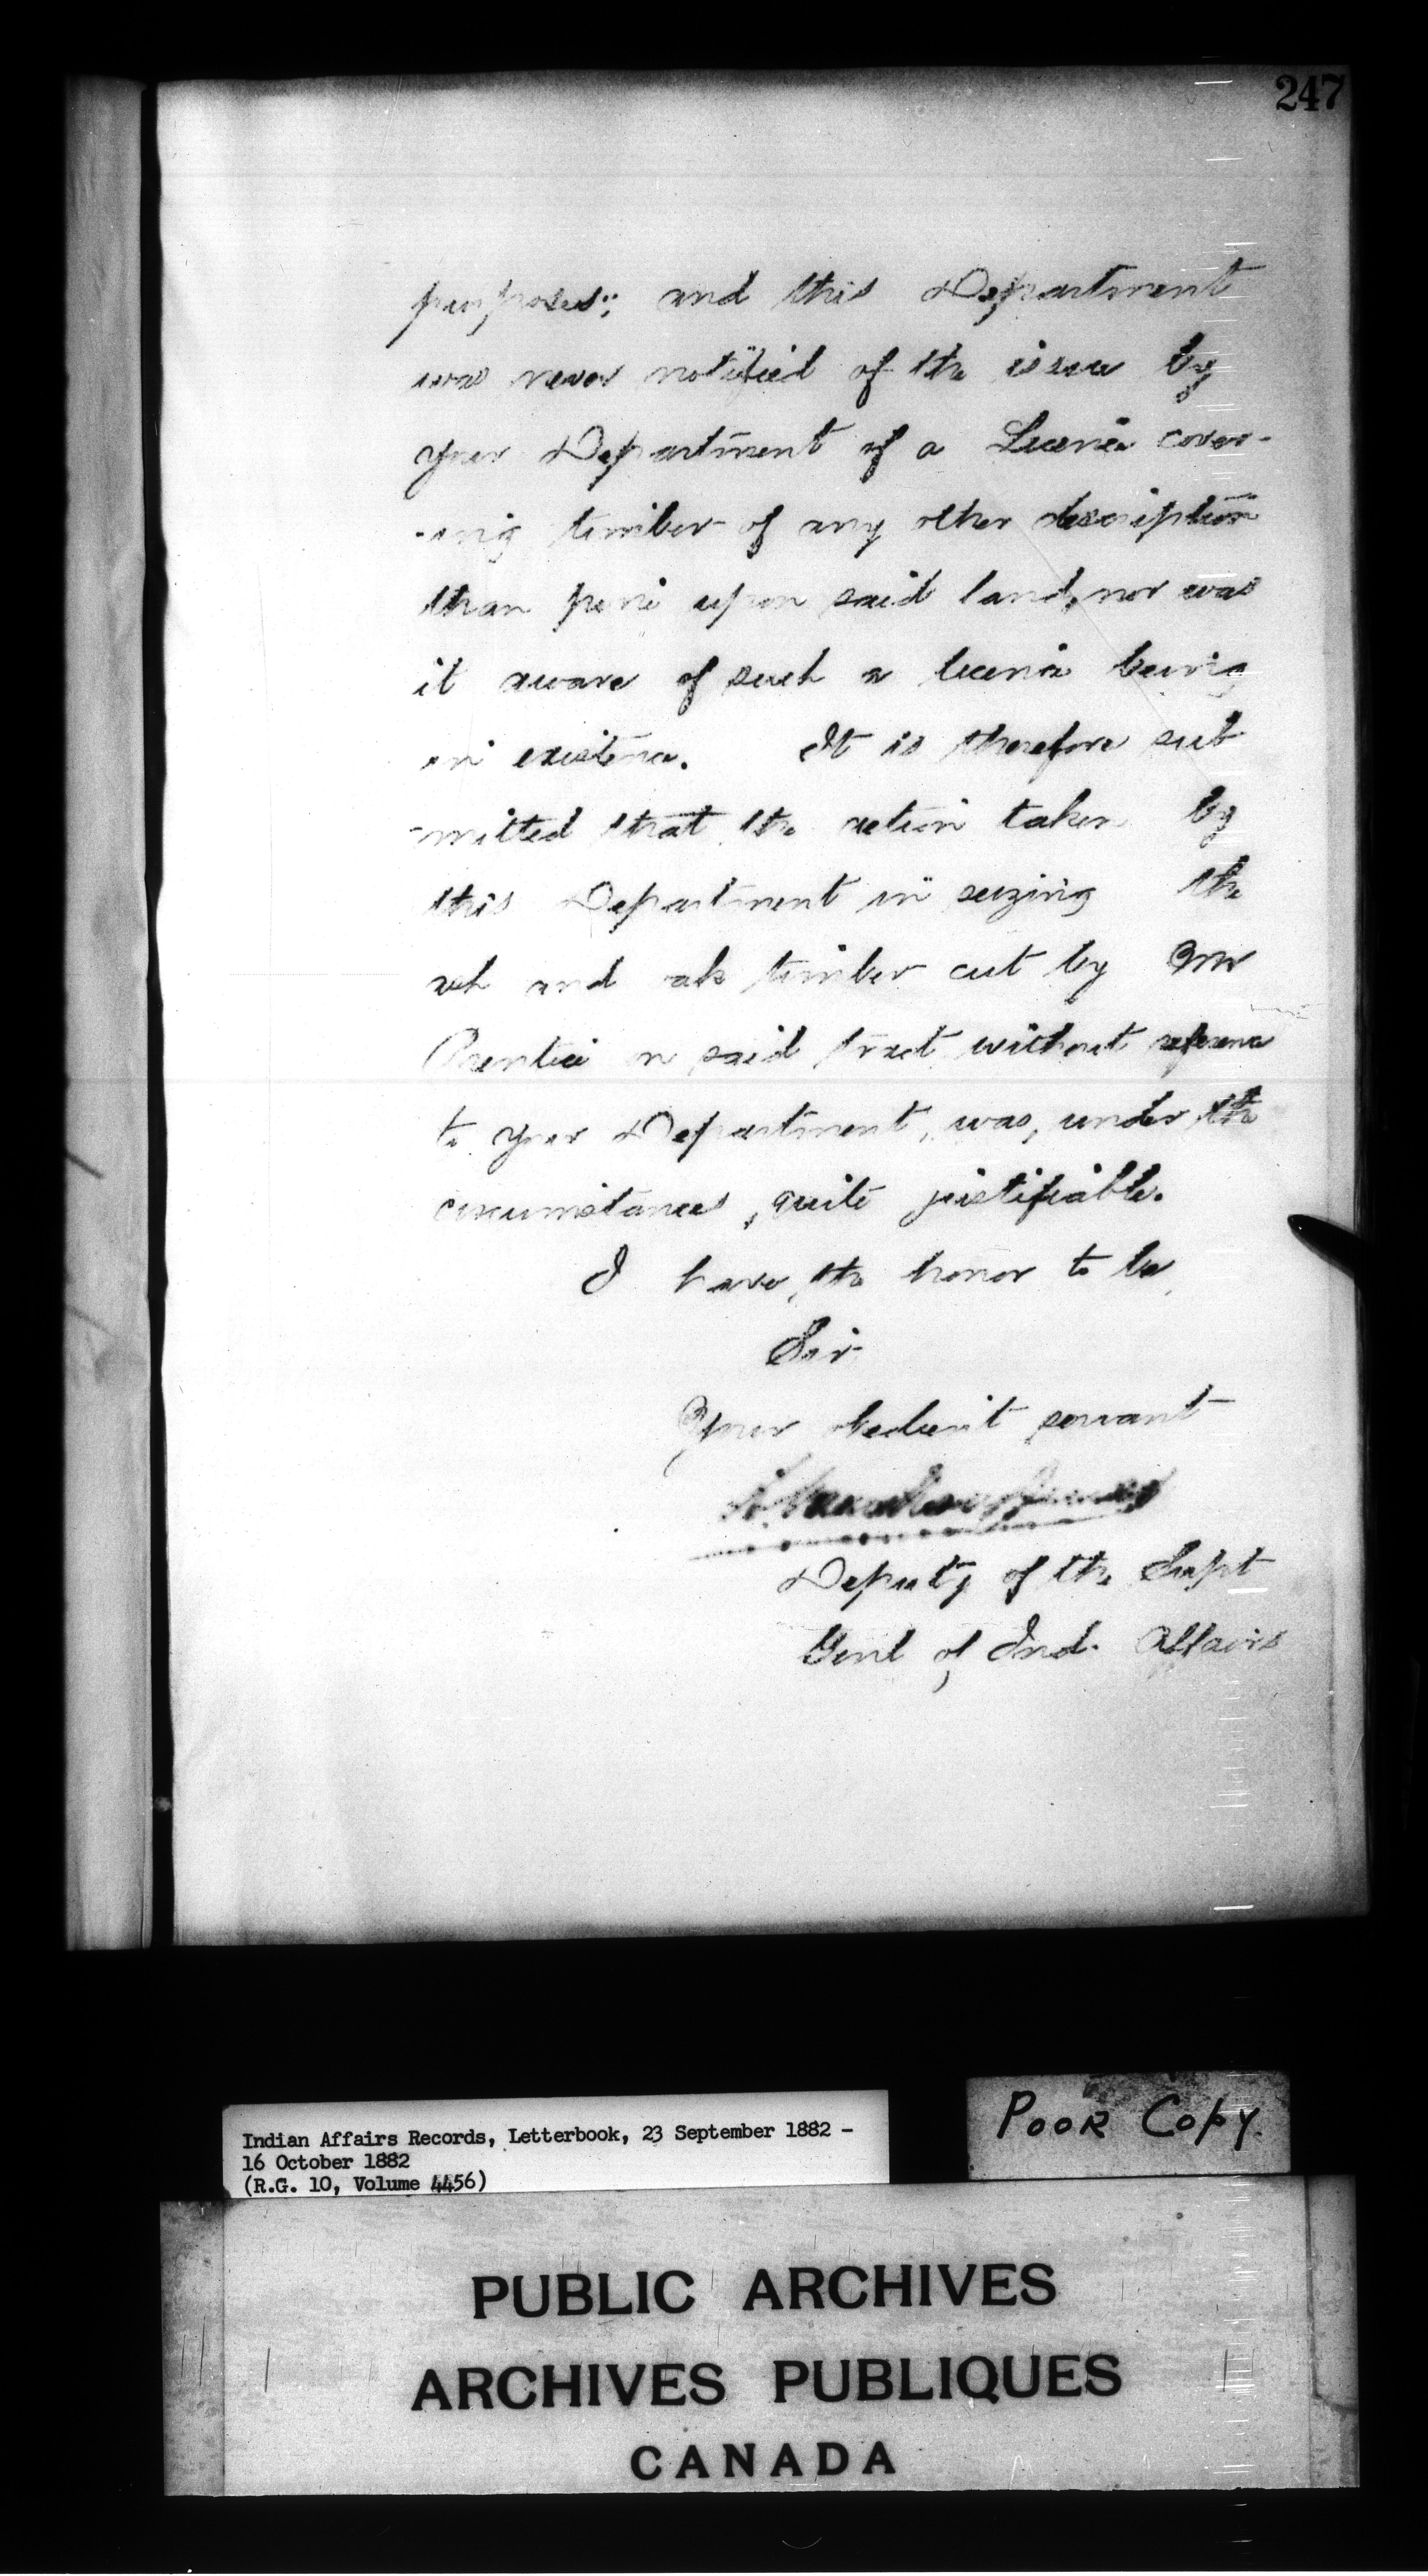 247
purposes"; and this Department
was never notified of the issue by
your Department of a License cover-
-ing timber of any other description
than pine upon said land, nor was
it aware of such a license being
in existence. It is therefore sub
-mitted that the action taken by
this Department in seizing the
ash and oak timber cut by Mr
Prentice on said tract without reference
to your Department, was, under the
circumstances, quite justifiable.
I have the honor to be,
Sir
Your obedient servant
Deputy of the Supt
Genl of Ind. Affairs
Indian Affairs Records, Letterbook, 23 September 1882 -
16 October 1882
(R.G. 10, Volume 4456)
POOR COPY.
PUBLIC ARCHIVES
ARCHIVES PUBLIQUES
CANADA